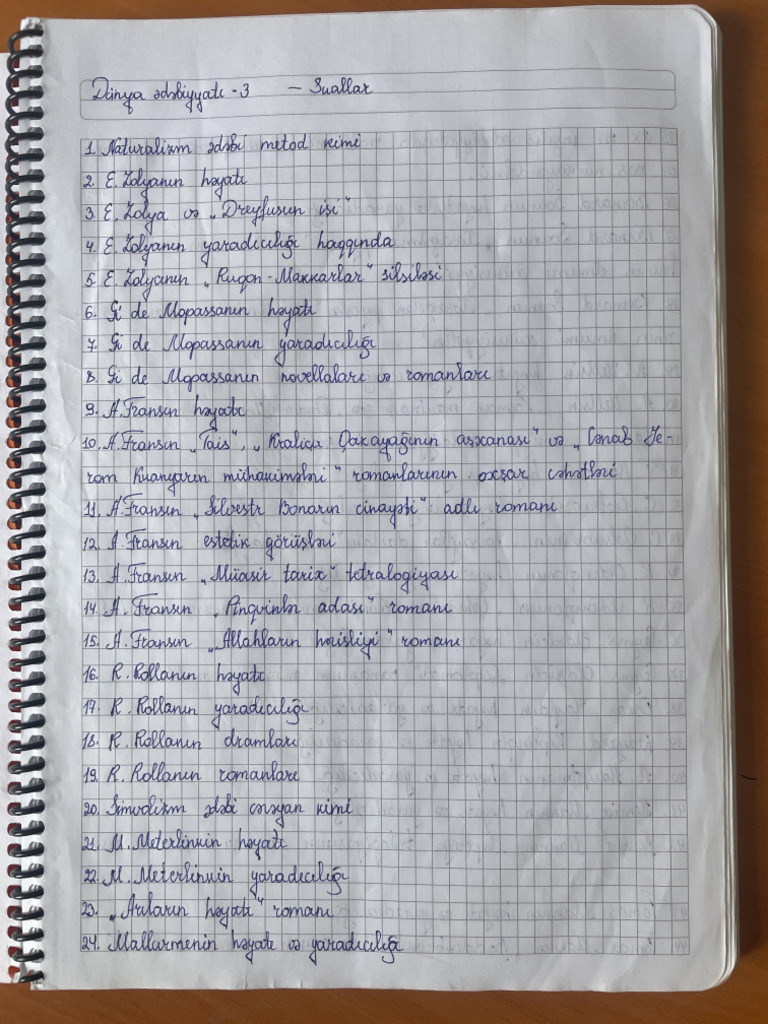 Dünya ədəbiyyatı - 3 — Suallar
1. Naturalizm ədəbi metod kimi
2. E. Zolyanın həyatı
3. E. Zolya və „Dreyfusun işi"
4. E. Zolyanın yaradıcılığı haqqında
5. E. Zolyanın „Ruqon-Makkarlar" silsiləsi
6. Gi de Mopassanın həyatı
7. Gi de Mopassanın yaradıcılığı
8. Gi de Mopassanın novellaları və romanları
9. A. Fransın həyatı
10. A. Fransın „Tais", „Kraliça Qazayağının aşxanası" və „Cənab Je-
rom Kuanyarın mühakimələri" romanlarının oxşar cəhətləri
11. A. Fransın „Silvestr Bonarın cinayəti" adlı romanı
12. A. Fransın estetik görüşləri
13. A. Fransın „Müasir tarix" tetralogiyası
14. A. Fransın „Pinqvinlər adası" romanı
15. A. Fransın „Allahların hərisliyi" romanı
16. R. Rollanın həyatı
17. R. Rollanın yaradıcılığı
18. R. Rollanın dramları
19. R. Rollanın romanları
20. Simvolizm ədəbi cərəyan kimi
21. M. Meterlinkin həyatı
22. M. Meterlinkin yaradıcılığı
23. „Arıların həyatı" romanı
24. Mallarmenin həyatı və yaradıcılığı